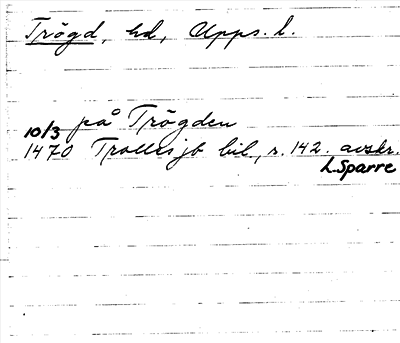 Trögd, hd, Upps. l.
på Trögden
10/3
1470 Trolles jb bil, r. 142. avskr.
L. Sparre